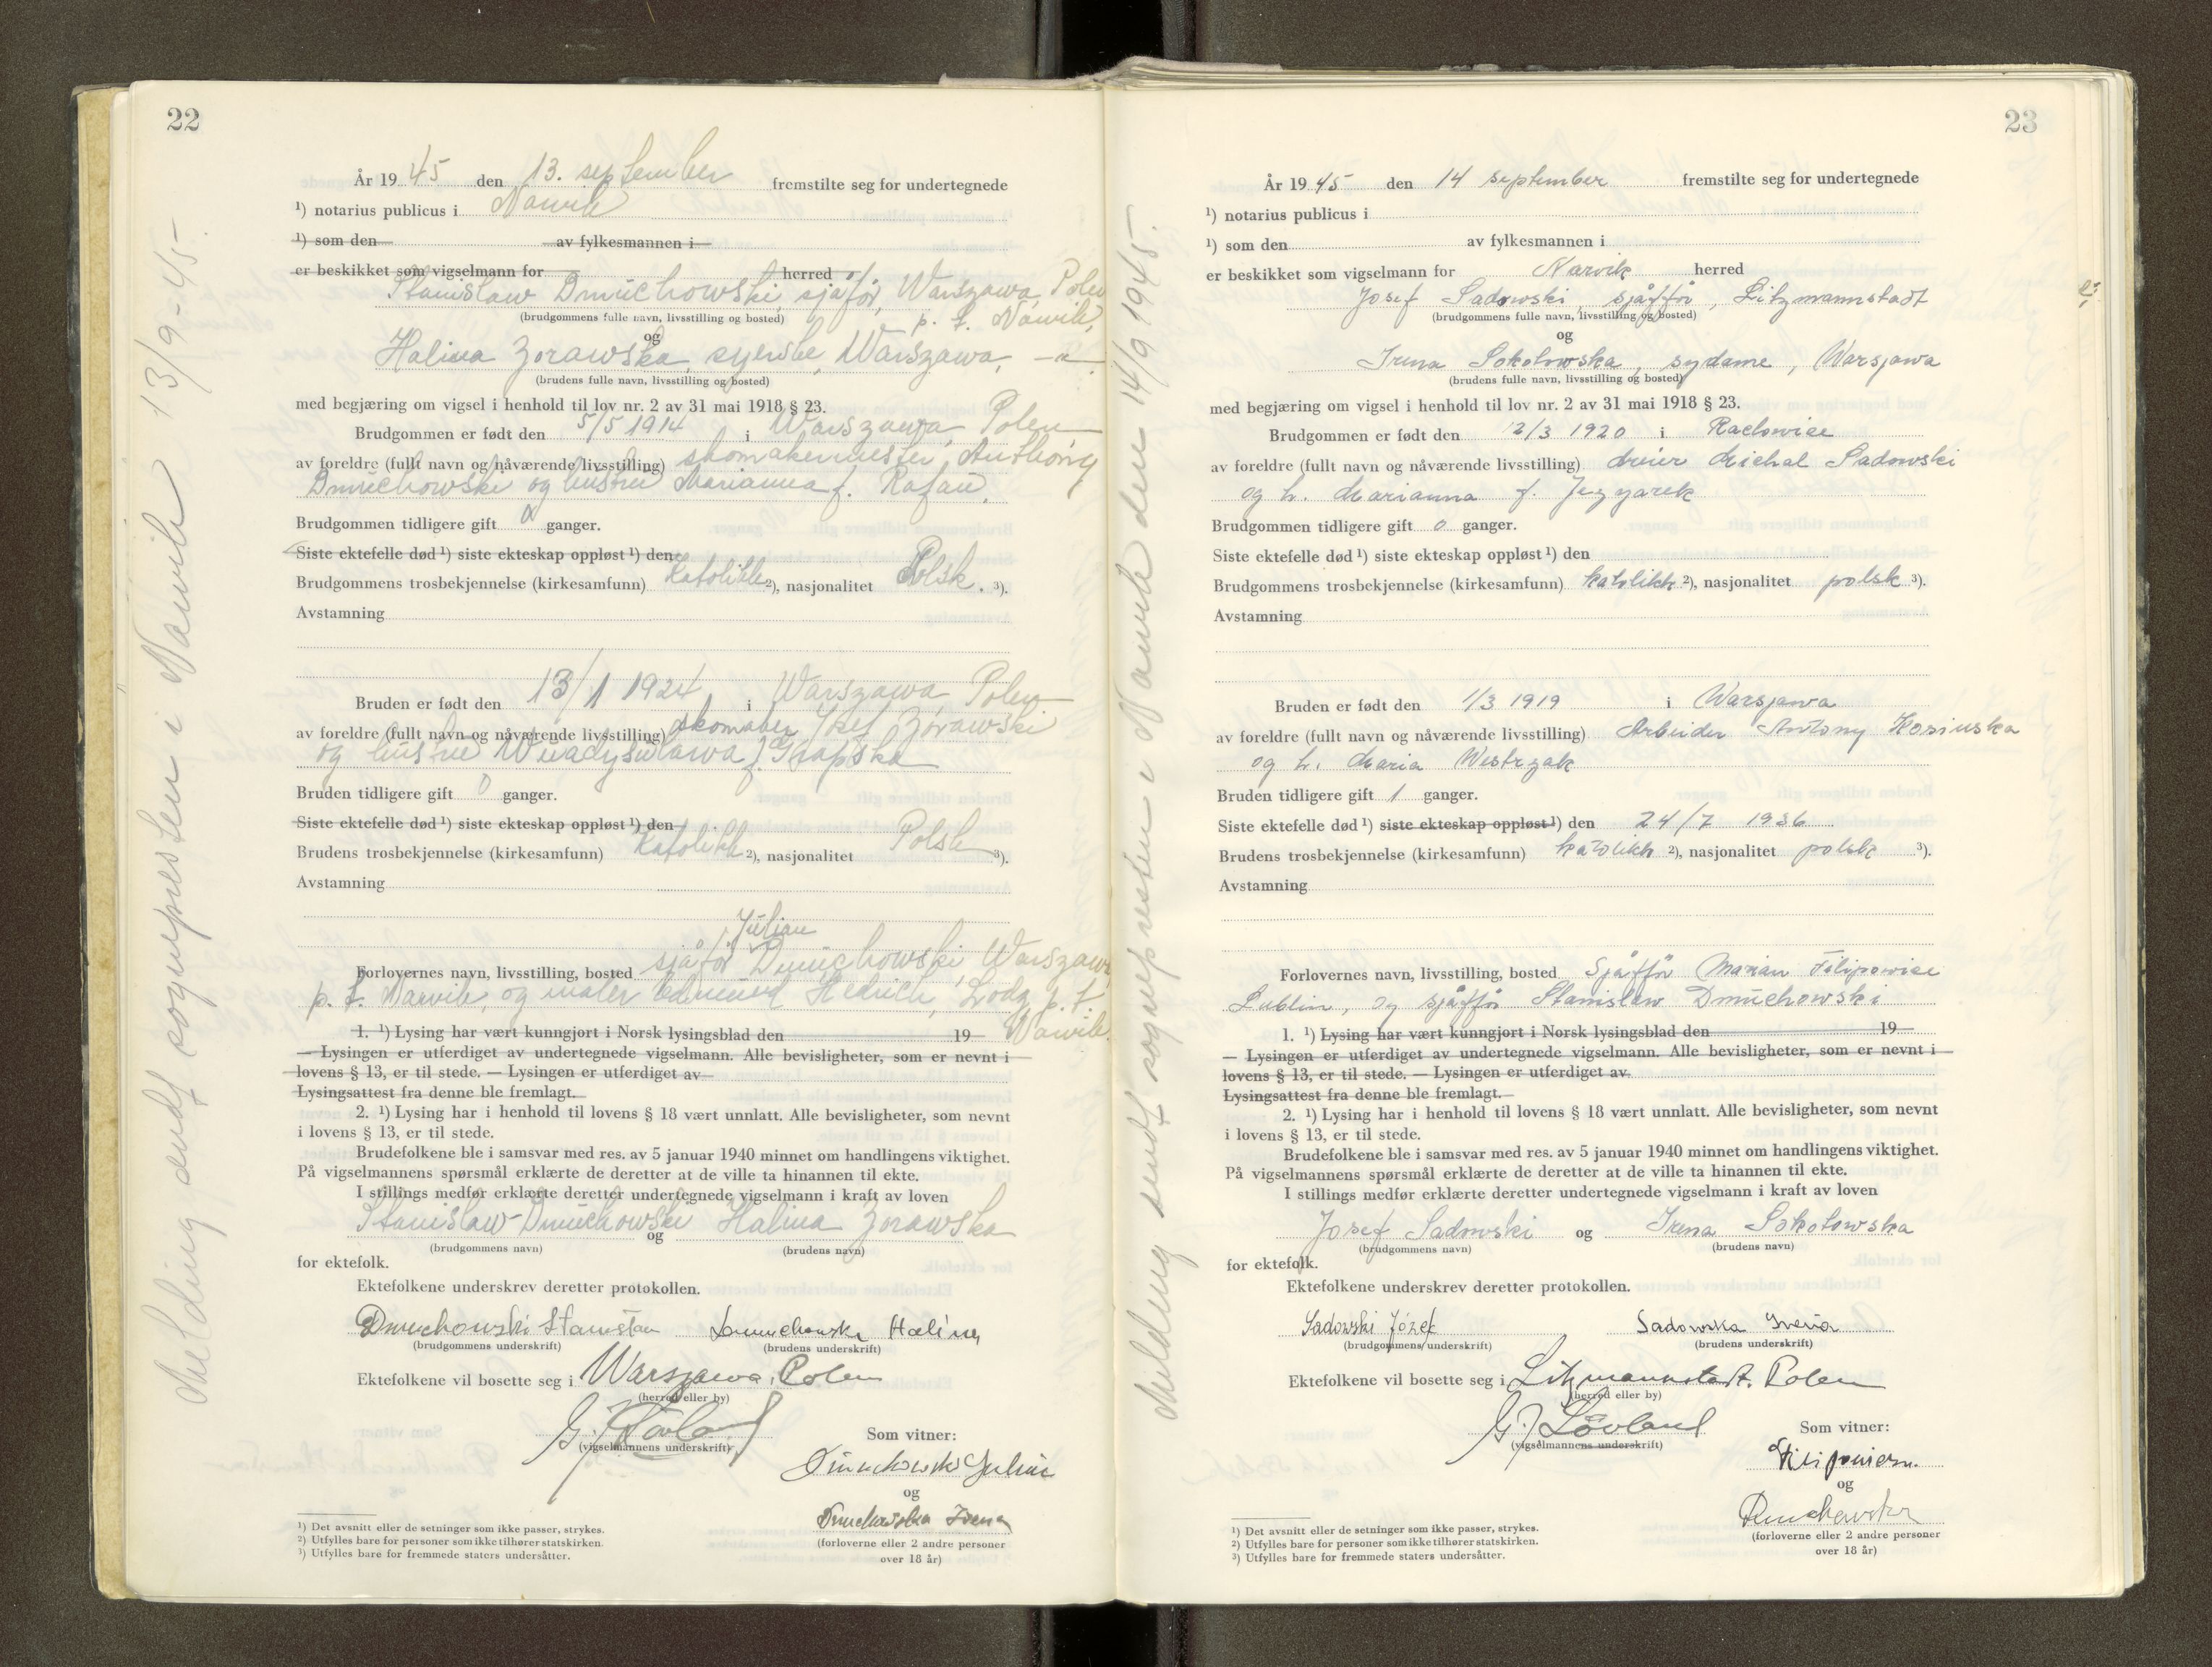 22
År 1945 den 13. september fremstilte seg for undertegnede
¹) notarius publicus i Narvik
¹) som den av fylkesmannen i
er beskikket som vigselmann for herred
Stanislaw Dmuchowski, sjåför, Warszawa, Polen
(brudgommens fulle navn, livsstilling og bosted) p. t. Narvik,
og
Halina Zorawska, syerske, Warszawa, -"-
(brudens fulle navn, livsstilling og bosted)
med begjæring om vigsel i henhold til lov nr. 2 av 31 mai 1918 § 23.
Brudgommen er født den 5/5 1914 i Warszawa, Polen,
av foreldre (fullt navn og nåværende livsstilling) skomakermester, Anthony
Dmuchowski og hustru Marianna f. Rafau.
Brudgommen tidligere gift 0 ganger.
Siste ektefelle død ¹) siste ekteskap oppløst ¹) den
Brudgommens trosbekjennelse (kirkesamfunn) Katolikk ²), nasjonalitet Polsk. ³).
Avstamning
Bruden er født den 13/1 1924 i Warszawa, Polen
av foreldre (fullt navn og nåværende livsstilling) skomaker Zorawski
og hustru f.
Bruden tidligere gift 0 ganger.
Siste ektefelle død ¹) siste ekteskap oppløst ¹) den
Brudens trosbekjennelse (kirkesamfunn) Katolikk ²), nasjonalitet Polsk ³).
Avstamning
Julian
Forlovernes navn, livsstilling, bosted sjåför Dmuchowski, Warszawa
p. t. Narvik, og maler Edmund Hedrich, Lodz p. t.
Narvik.
1. ¹) Lysing har vært kunngjort i Norsk lysingsblad den 19
— Lysingen er utferdiget av undertegnede vigselmann. Alle bevisligheter, som er nevnt i
lovens § 13, er til stede. — Lysingen er utferdiget av
Lysingsattest fra denne ble fremlagt.
2. ¹) Lysing har i henhold til lovens § 18 vært unnlatt. Alle bevisligheter, som nevnt
i lovens § 13, er til stede.
Brudefolkene ble i samsvar med res. av 5 januar 1940 minnet om handlingens viktighet.
På vigselmannens spørsmål erklærte de deretter at de ville ta hinannen til ekte.
I stillings medfør erklærte deretter undertegnede vigselmann i kraft av loven
Stanislaw Dmuchowski og Halina Zorawska
(brudgommens navn) (brudens navn)
for ektefolk.
Ektefolkene underskrev deretter protokollen.
Dmuchowski Stanisław Dmuchowska Halina
(brudgommens underskrift) (brudens underskrift)
Ektefolkene vil bosette seg i Warszawa, Polen
(herred eller by)
G. J. Lövland
(vigselmannens underskrift)
Som vitner:
Dmuchowski Julian
og
Dmuchowska Irena
(forloverne eller 2 andre personer
over 18 år)
¹) Det avsnitt eller de setninger som ikke passer, strykes.
²) Utfylles bare for personer som ikke tilhører statskirken.
³) Utfylles bare for fremmede staters undersåtter.
Melding sendt sognepresten i Narvik 13/9-45
23
År 1945 den 14 september fremstilte seg for undertegnede
¹) notarius publicus i
¹) som den av fylkesmannen i
er beskikket som vigselmann for Narvik herred
Josef Sadowski, sjåfför, Litzmannstadt
(brudgommens fulle navn, livsstilling og bosted)
og
Irena Sokolowska, sydame, Warsjawa
(brudens fulle navn, livsstilling og bosted)
med begjæring om vigsel i henhold til lov nr. 2 av 31 mai 1918 § 23.
Brudgommen er født den 12/3 1920 i Raclowise
av foreldre (fullt navn og nåværende livsstilling) dreier Michal Sadowski
og h. Marianna f. Jezyarek
Brudgommen tidligere gift 0 ganger.
Siste ektefelle død ¹) siste ekteskap oppløst ¹) den
Brudgommens trosbekjennelse (kirkesamfunn) katolikk ²), nasjonalitet polsk ³).
Avstamning
Bruden er født den 1/3 1919 i Warsjawa
av foreldre (fullt navn og nåværende livsstilling) Arbeider Antony Kosinska
og h. Maria Westrzak
Bruden tidligere gift 1 ganger.
Siste ektefelle død ¹) siste ekteskap oppløst ¹) den 24/7 1936
Brudens trosbekjennelse (kirkesamfunn) katolikk ²), nasjonalitet polsk ³).
Avstamning
Forlovernes navn, livsstilling, bosted Sjåfför Marian Filipowise
Lublin, og sjåfför Stanislaw Dmuchowski
1. ¹) Lysing har vært kunngjort i Norsk lysingsblad den 19
— Lysingen er utferdiget av undertegnede vigselmann. Alle bevisligheter, som er nevnt i
lovens § 13, er til stede. — Lysingen er utferdiget av
Lysingsattest fra denne ble fremlagt.
2. ¹) Lysing har i henhold til lovens § 18 vært unnlatt. Alle bevisligheter, som nevnt
i lovens § 13, er til stede.
Brudefolkene ble i samsvar med res. av 5 januar 1940 minnet om handlingens viktighet.
På vigselmannens spørsmål erklærte de deretter at de ville ta hinannen til ekte.
I stillings medfør erklærte deretter undertegnede vigselmann i kraft av loven
Josef Sadowski og Irena Sokolowska
(brudgommens navn) (brudens navn)
for ektefolk.
Ektefolkene underskrev deretter protokollen.
Sadowski Józef Sadowska Irena
(brudgommens underskrift) (brudens underskrift)
Ektefolkene vil bosette seg i Litzmannstadt. Polen
(herred eller by)
G. J. Lövland
(vigselmannens underskrift)
Som vitner:
og
Dmuchowski
(forloverne eller 2 andre personer
over 18 år)
¹) Det avsnitt eller de setninger som ikke passer, strykes.
²) Utfylles bare for personer som ikke tilhører statskirken.
³) Utfylles bare for fremmede staters undersåtter.
Melding sendt sognepresten i Narvik den 14/9 1945.